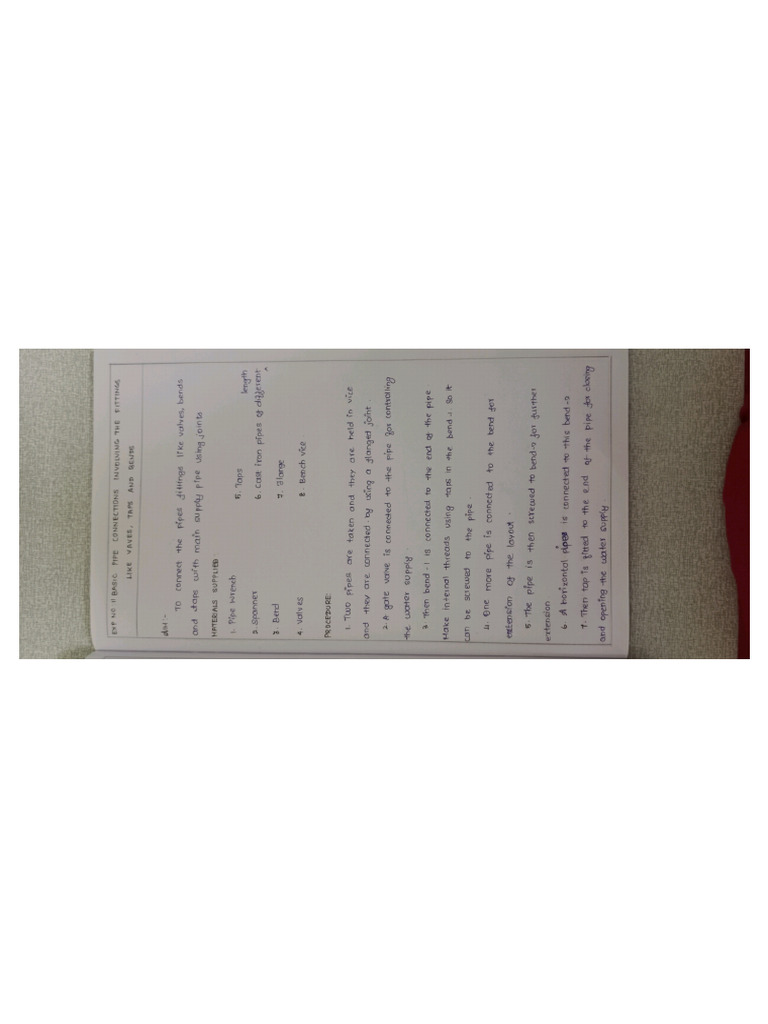 EXP NO 11 BASIC PIPE CONNECTIONS INVOLVING THE FITTINGS
LIKE VAVES, TAPS AND BENDS
AIM:-
TO connect the pipes fittings like valves, bends
and taps with main supply pipe using joints
MATERIALS SUPPLIED:
1. Pipe wrench
5. Taps
length
2. Spanner
6. Cast iron pipes of different ^
3. Bend
7. Flange
4. Valves
8. Bench vice
PROCEDURE:
1. Two pipes are taken and they are held in vice
and they are connected by using a flanged joint.
2. A gate valve is connected to the pipe for controlling
the water supply
3. Then bend-1 is connected to the end of the pipe
Make internal threads using taps in the bend-1. So it
can be screwed to the pipe.
4. One more pipe is connected to the bend for
extension of the layout.
5. The pipe is then screwed to bend-2 for further
extension
6. A horizontal pipe is connected to this bend-2
7. Then tap is fixed to the end of the pipe for closing
and opening the water supply.